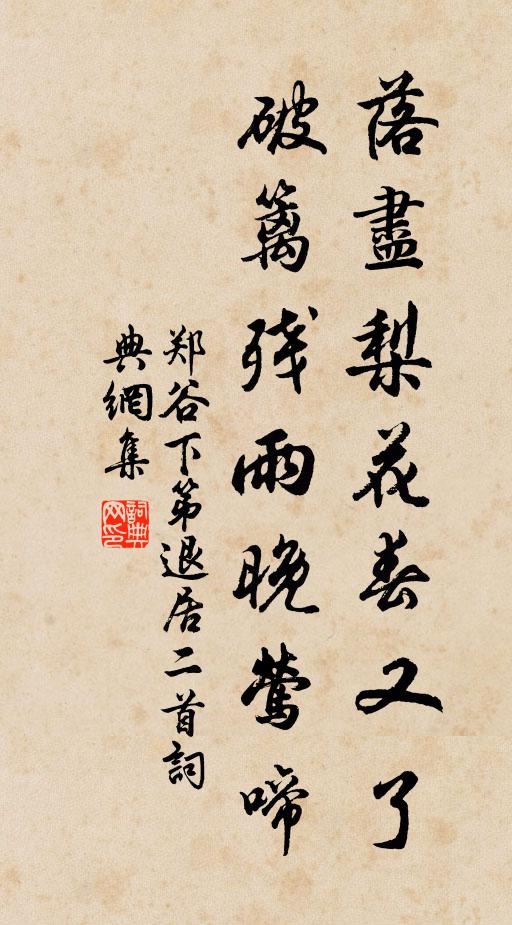 落盡梨花春又了
破籬殘雨晚鶯啼
郑谷下第退居二首詞
典網集
詞典网印